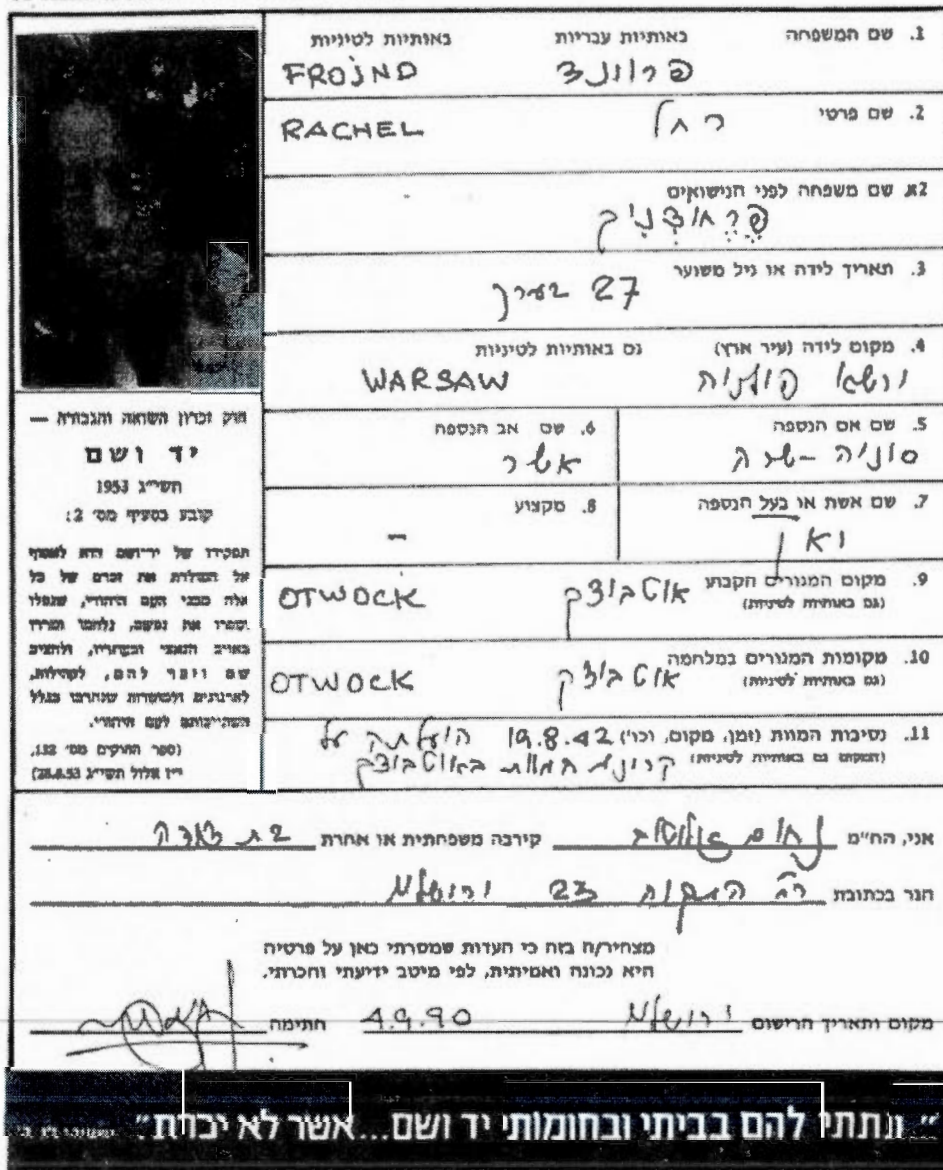 1. שם המשפחה באותיות עבריות באותיות לטיניות
פרוינד FROJND
2. שם פרטי רחל RACHEL
2א. שם משפחה לפני הנישואים
3. תאריך לידה או גיל משוער
27 בערך
4. מקום לידה (עיר ארץ) גם באותיות לטיניות
ורשא פולניה WARSAW
5. שם אם הנספה
סוניה - שרה
6. שם אב הנספה
אשר
7. שם אשת או בעל הנספה
8. מקצוע
-
9. מקום המגורים הקבוע אוטבוצק OTWOCK
(גם באותיות לטיניות)
10. מקומות המגורים במלחמה אוטבוצק OTWOCK
(גם באותיות לטיניות)
11. נסיבות המוות (זמן, מקום, וכו') 19.8.42 הועלתה על
(המקום גם באותיות לטיניות) קרונות המוות באוטבוצק
חוק זכרון השואה והגבורה —
יד ושם
תשי"ג 1953
קובע בסעיף מס' 2:
תפקידו של יד-ושם הוא לאסוף
אל המולדת את זכרם של כל
אלה מבני העם היהודי, שנפלו
ומסרו את נפשם, נלחמו ומרדו
באויב הנאצי ובעוזריו, ולהציב
שם וזכר להם, לקהילות,
לארגונים ולמוסדות שנחרבו בגלל
השתייכותם לעם היהודי.
(ספר החוקים מס' 132,
י"ז אלול תשי"ג 28.8.53)
אני, הח"מ נחום קירבה משפחתית או אחרת בת דודה
הגר בכתובת 23 ירושלים
מצהיר/ה בזה כי העדות שמסרתי כאן על פרטיה
היא נכונה ואמיתית, לפי מיטב ידיעתי והכרתי.
מקום ותאריך הרישום ירושלים 4.9.90 חתימה
"ונתתי להם בביתי ובחומותי יד ושם...אשר לא יכרת"